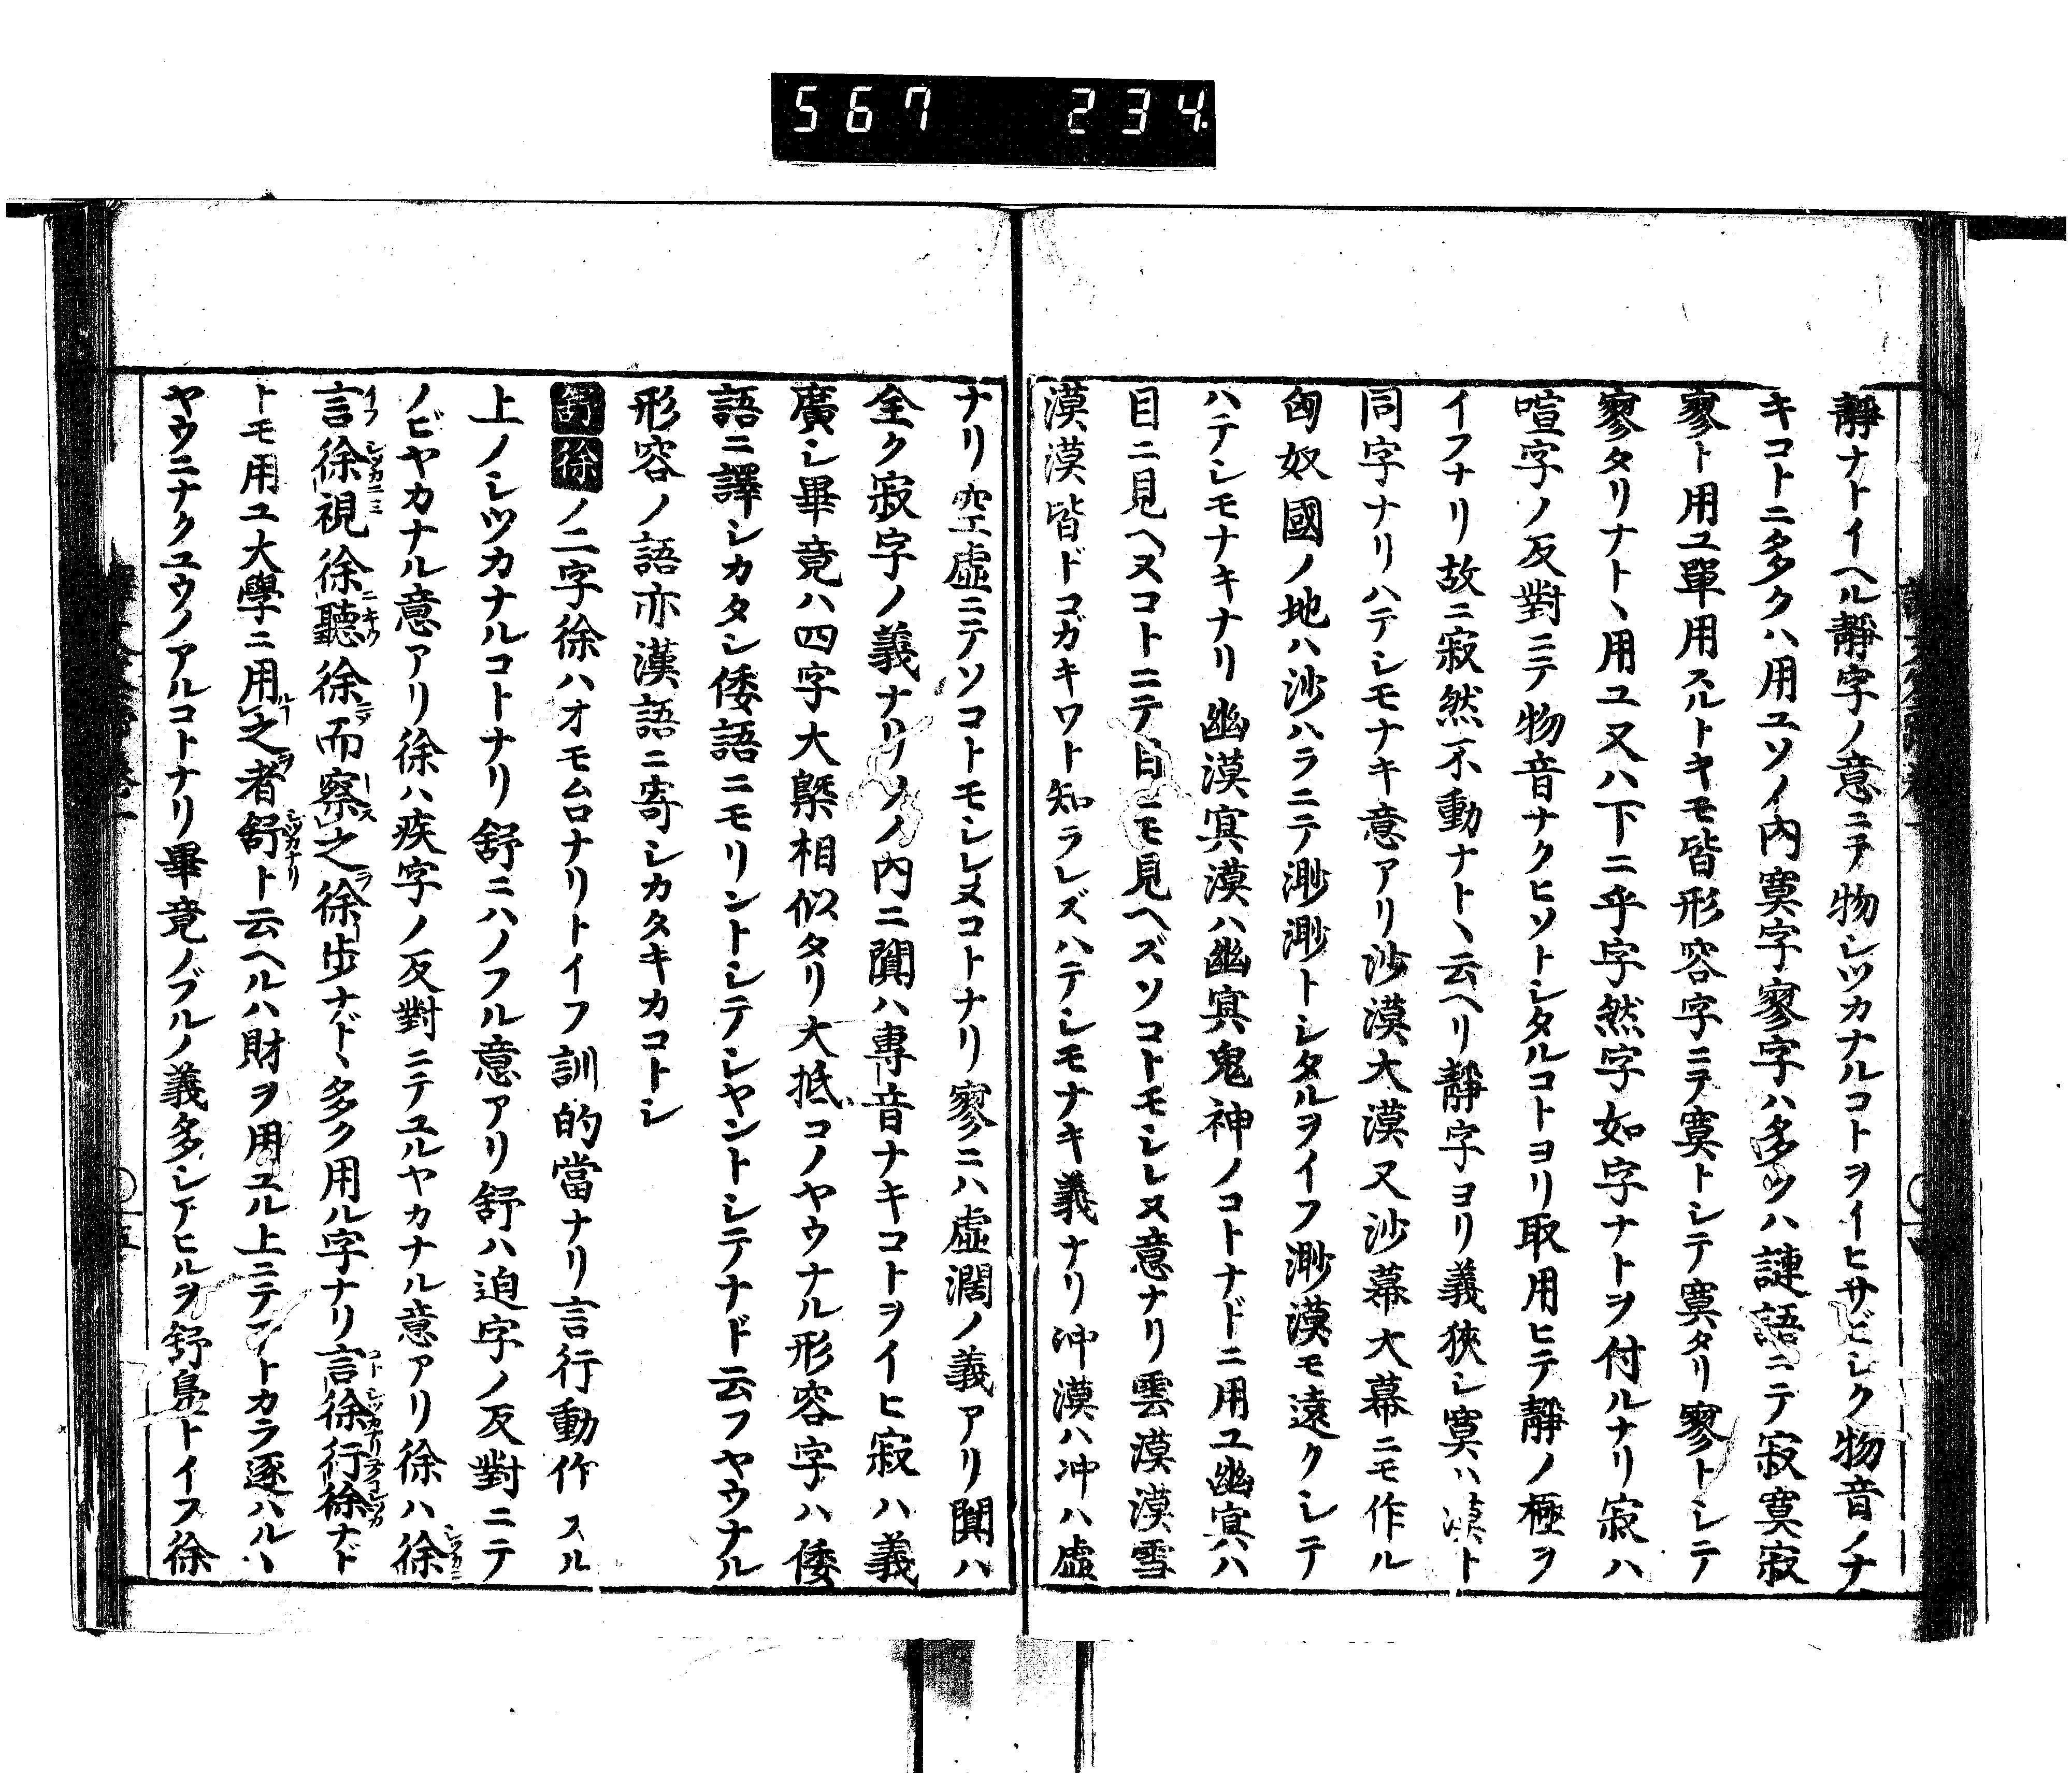 567 234
靜ナトイヘル靜字ノ意ニテ物シツカナルコトヲイヒサビシク物音ノナ
キコトニ多クハ用ユソノ内寞字寥字ハ多クハ謰語ニテ寂寞寂
寥ト用ユ單用スルトキモ皆形容字ニテ寞トシテ寞タリ寥トシテ
寥タリナトヽ用ユ又ハ下ニ乎字然字如字ナトヲ付ルナリ寂ハ
喧字ノ反對ニテ物音ナクヒソトシタルコトヨリ取用ヒテ靜ノ極ヲ
イフナリ故ニ寂然不動ナトヽ云ヘリ靜字ヨリ義狹シ寞ハ漠ト
同字ナリハテシモナキ意アリ沙漠大漠又沙幕大幕ニモ作ル
匈奴國ノ地ハ沙ハラニテ渺渺トシタルヲイフ渺漠モ遠クシテ
ハテシモナキナリ幽漠冥漠ハ幽冥鬼神ノコトナドニ用ユ幽冥ハ
目ニ見ヘヌコトニテ目ニモ見ヘズソコトモシレヌ意ナリ雲漠漠雪
漠漠皆ドコガキワト知ラレズハテシモナキ義ナリ沖漠ハ沖ハ虛
ナリ空虛ニテソコトモシレヌコトナリ寥ニハ虛濶ノ義アリ闃ハ
全ク寂字ノ義ナリソノ内ニ闃ハ專音ナキコトヲイヒ寂ハ義
廣シ畢竟ハ四字大槩相似タリ大抵コノヤウナル形容字ハ倭
語ニ譯シカタシ倭語ニモリントシテシヤントシテナド云フヤウナル
形容ノ語亦漢語ニ寄シカタキカコトシ
舒徐ノ二字徐ハオモムロナリトイフ訓的當ナリ言行動作スル
上ノシツカナルコトナリ舒ニハノフル意アリ舒ハ迫字ノ反對ニテ
ノビヤカナル意アリ徐ハ疾字ノ反對ニテユルヤカナル意アリ徐ハ徐
言徐視徐聽徐而察之徐步ナドヽ多ク用ル字ナリ言徐行徐ナド
トモ用ユ大學ニ用之者舒ト云ヘルハ財ヲ用ユル上ニテアトカラ逐ハルヽ
ヤウニナクユウノアルコトナリ畢竟ノブルノ義多シアヒルヲ舒鳧トイフ徐